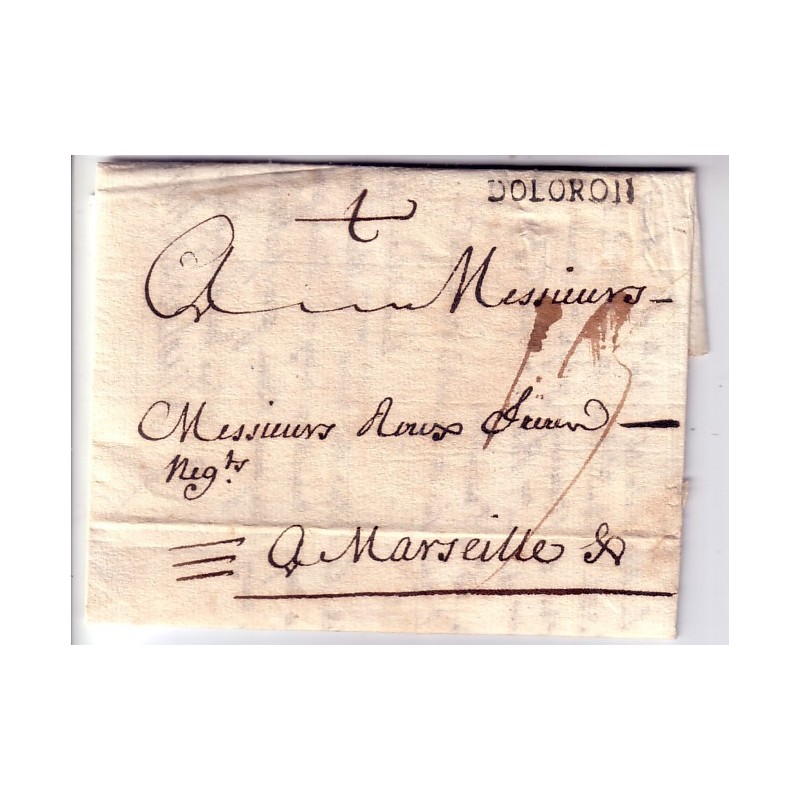 DOLORON
A Messieurs
Messieurs Roux frères
Negts
A Marseille &